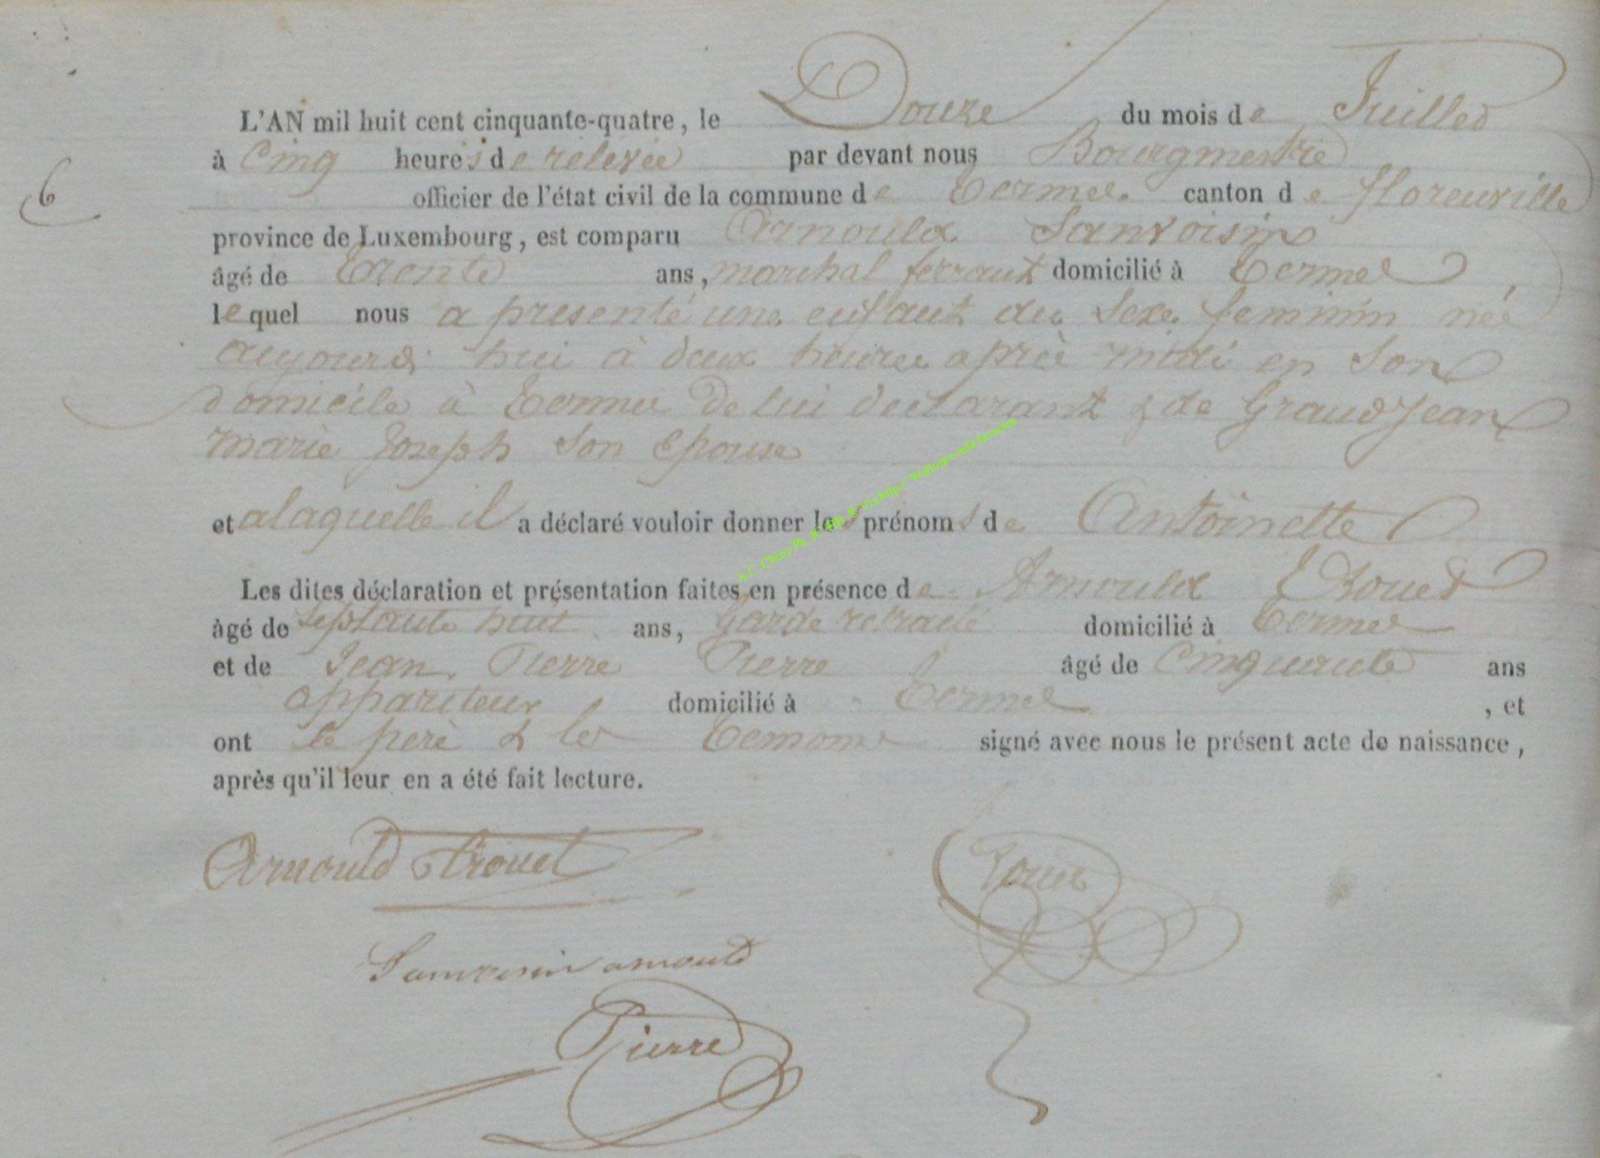 L'AN mil huit cent cinquante-quatre, le Douze du mois de Juillet
à Cinq heures de relevée par devant nous Bourgmestre
6
officier de l'état civil de la commune de Termes canton de florenville
province de Luxembourg, est comparu Arnould Sanvoisin
âgé de Trente ans, marchal ferrant domicilié à Termes,
lequel nous a presenté une enfant du Sexe feminin née
aujourd'hui à deux heures après midi en Son
domicile à Termes De lui declarant & de GrandJean
marie Joseph Son Epouse
et a laquelle il a déclaré vouloir donner les prénoms de Antoinette
Les dites déclaration et présentation faites en présence de Arnould
âgé de Septante huit ans, Garde retraité domicilié à Termes
et de Jean Pierre Pierre âgé de Cinquante ans
appariteur domicilié à Termes, et
ont le perè & les temoins signé avec nous le présent acte de naissance,
après qu'il leur en a été fait lecture.
Arnould
Sanvoisin arnould
Pierre